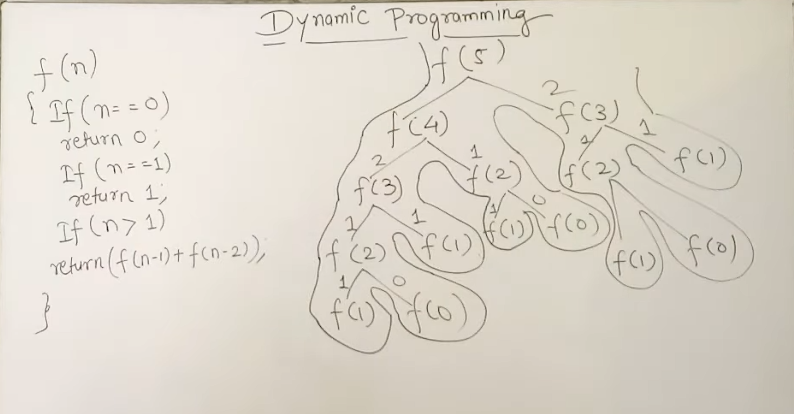 Dynamic Programming
f(n)
{ If(n==0)
return 0;
If(n==1)
return 1;
If(n>1)
return(f(n-1)+f(n-2));
}
f(5)
2
f(4) f(3)
2 1 1 1
f(3) f(2) f(2) f(1)
1 1 1 0
f(2) f(1) f(1) f(0) f(1) f(0)
1 0
f(1) f(0)